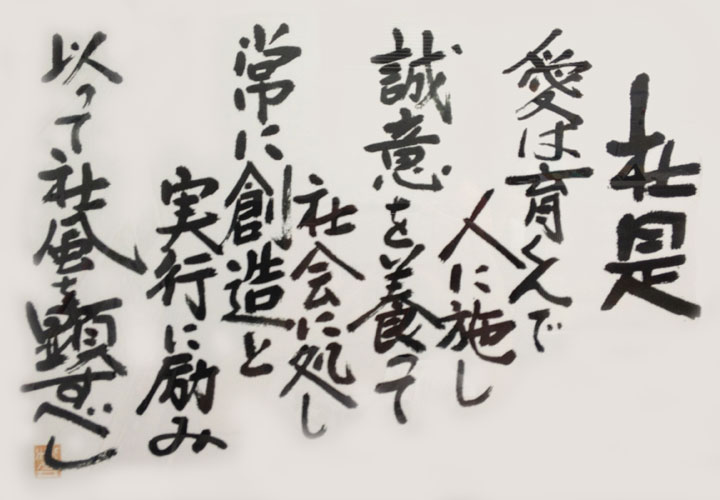 社是
愛は育くんで
人に施し
誠意を養って
社会に処し
常に創造と
実行に励み
以って社風を顕すべし